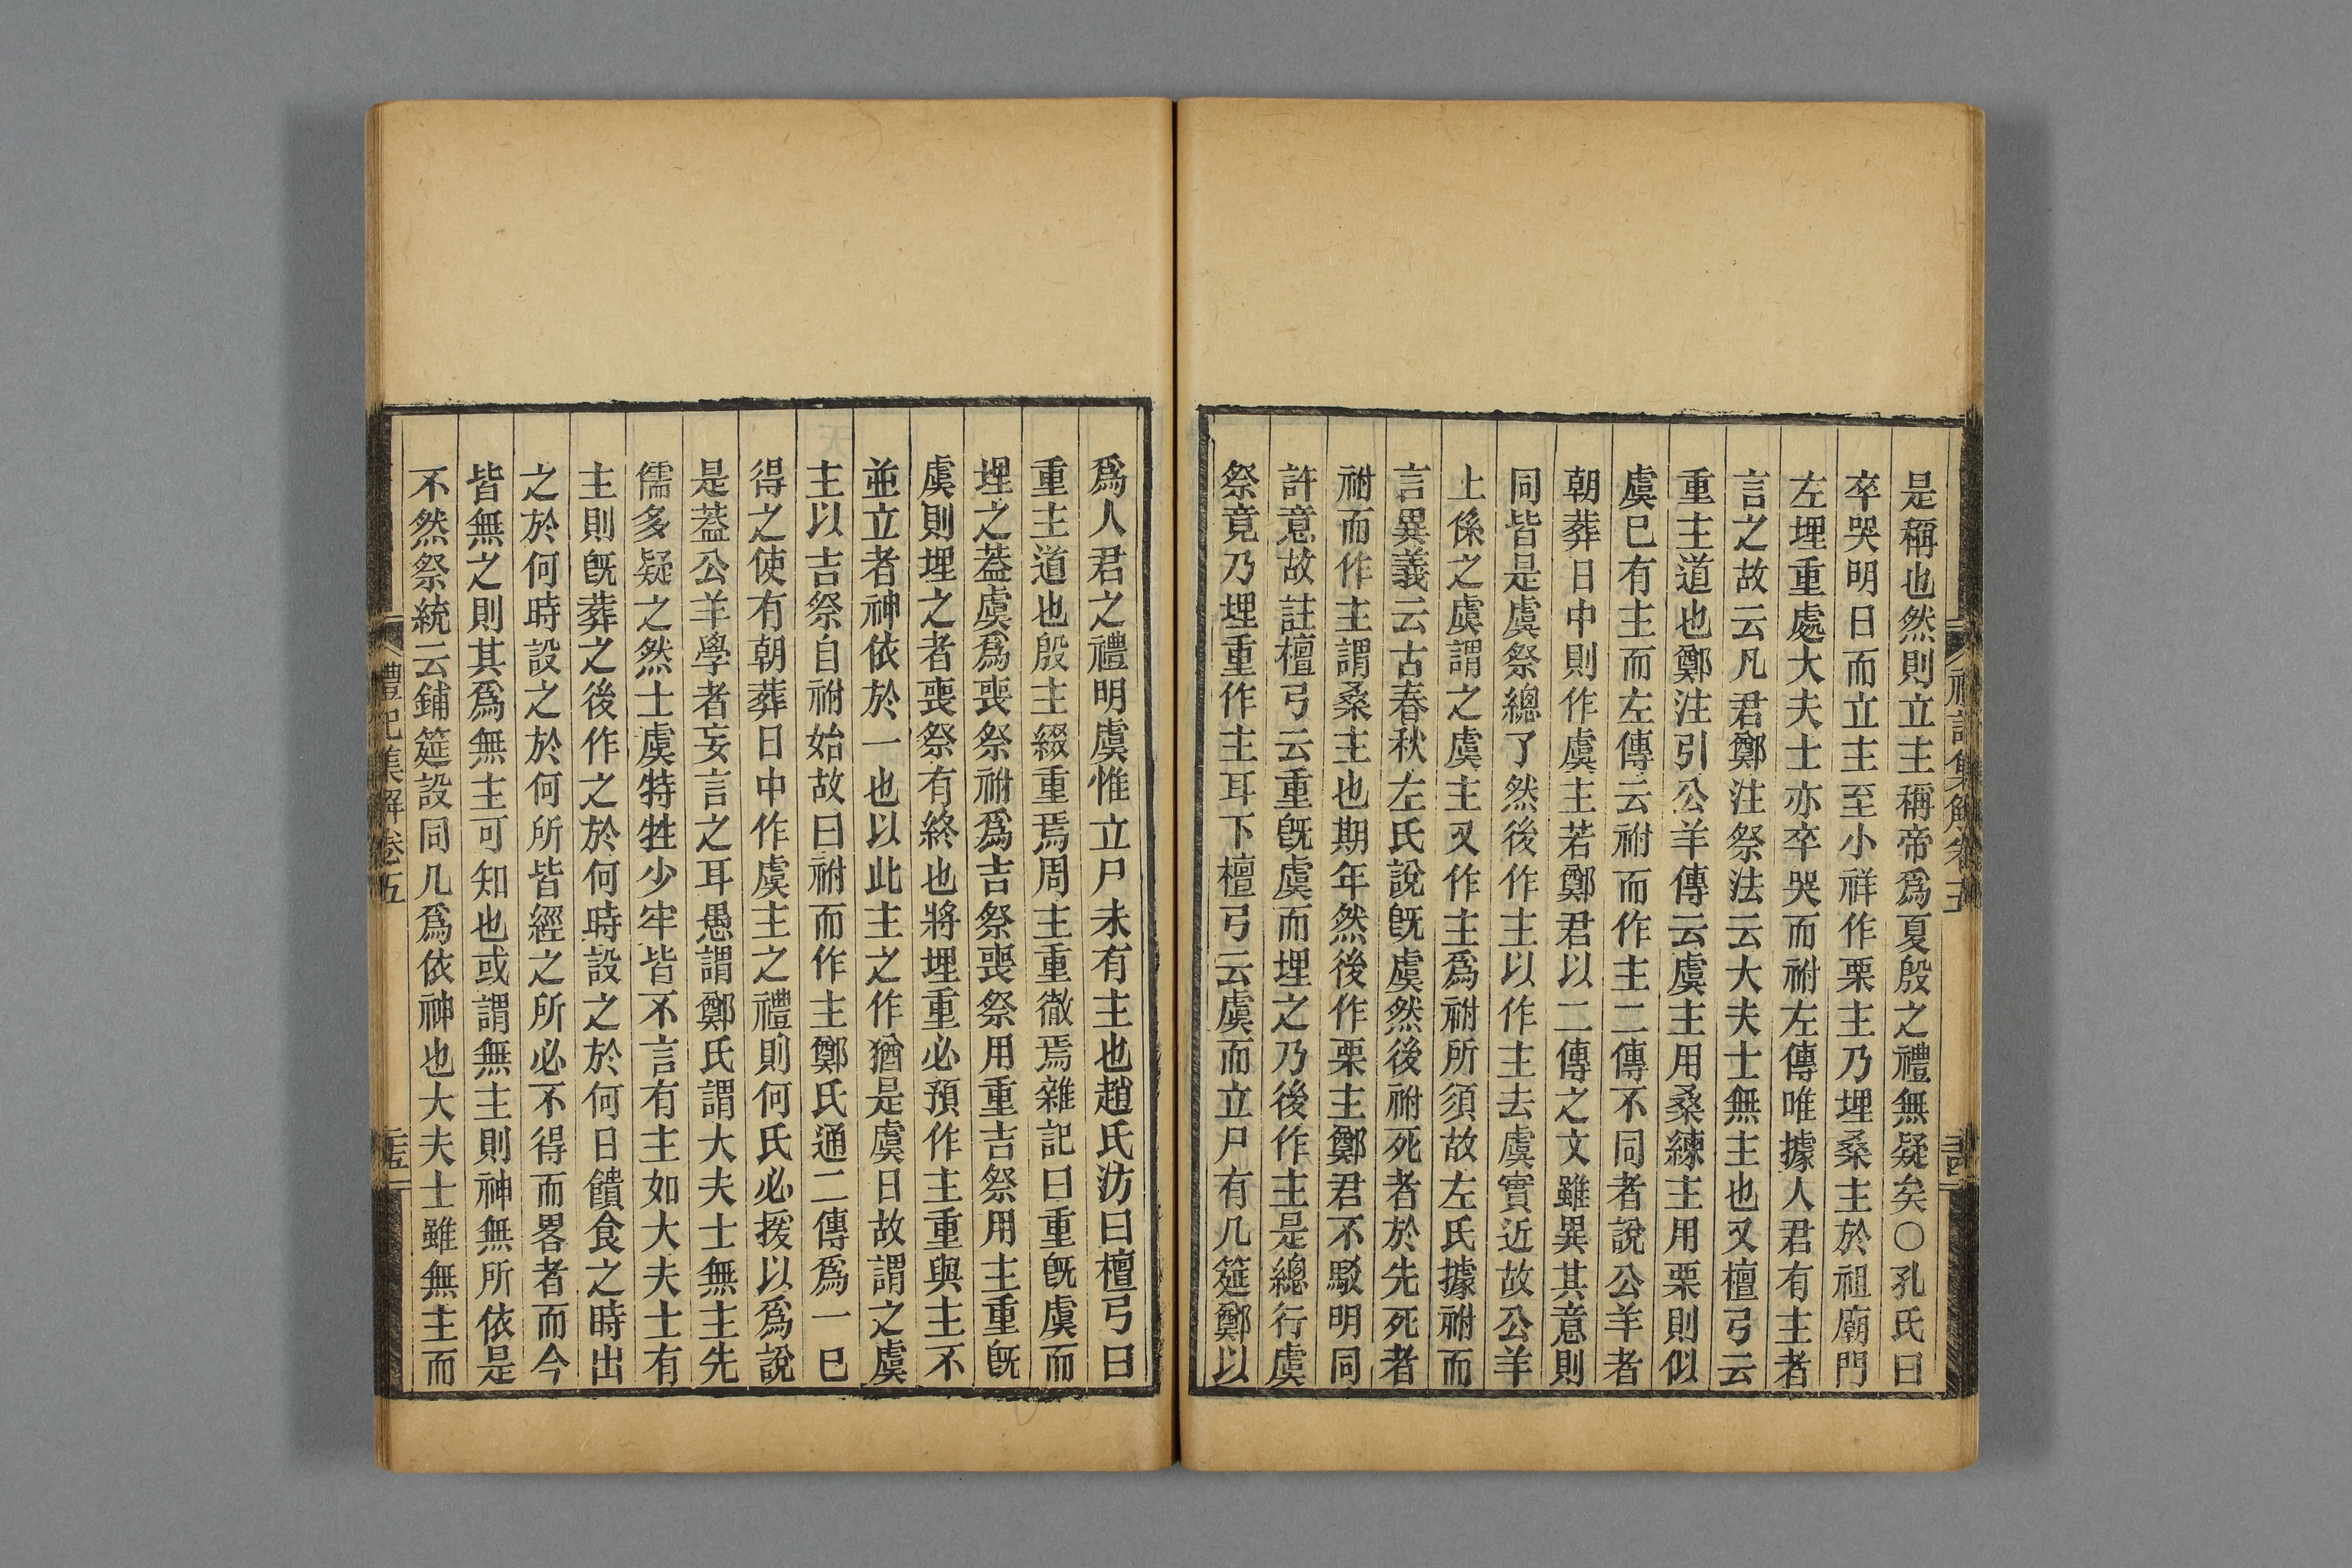 是稱也然則立主稱帝爲夏殷之禮無疑矣○孔氏曰
卒哭明日而立主至小祥作栗主乃埋桑主於祖廟門
左埋重處大夫士亦卒哭而祔左傳唯據人君有主者
言之故云凡君鄭注祭法云大夫士無主也又檀弓云
重主道也鄭注引公羊傳云虞主用桑練主用栗則似
虞巳有主而左傳云祔而作主二傳不同者說公羊者
朝葬日中則作虞主若鄭君以二傳之文雖異其意則
同皆是虞祭總了然後作主以作主去虞實近故公羊
上係之虞謂之虞主又作主爲祔所須故左氏據祔而
言異義云古春秋左氏說旣虞然後祔死者於先死者
祔而作主謂桑主也期年然後作栗主鄭君不駁明同
許意故註檀弓云重旣虞而埋之乃後作主是總行虞
祭竟乃埋重作主耳下檀弓云虞而立尸有几筵鄭以
爲人君之禮明虞惟立尸未有主也趙氏汸曰檀弓曰
重主道也殷主綴重焉周主重徹焉雜記曰重旣虞而
埋之蓋虞爲喪祭祔爲吉祭喪祭用重吉祭用主重旣
虞則埋之者喪祭有終也將埋重必預作主重與主不
並立者神依於一也以此主之作猶是虞日故謂之虞
主以吉祭自祔始故曰祔而作主鄭氏通二傳爲一巳
得之使有朝葬日中作虞主之禮則何氏必援以爲說
是蓋公羊學者妄言之耳愚謂鄭氏謂大夫士無主先
儒多疑之然士虞特牲少牢皆不言有主如大夫士有
主則旣葬之後作之於何時設之於何日饋食之時出
之於何時設之於何所皆經之所必不得而畧者而今
皆無之則其爲無主可知也或謂無主則神無所依是
不然祭統云鋪筵設同几爲依神也大夫士雖無主而
禮記集解卷五